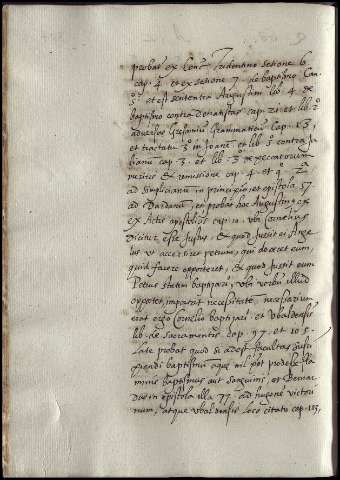 probat ex Conc. Tridentino setione 6
cap. 4. et ex setione 7. de baptismo Can
5. et est sententia Augustini lib. 4. de
baptismo contra Donatistas cap. 21 et lib. 2.
adversus Gresonium Grammaticum Cap. 13,
et tractatu 3. in Joane et lib. 5. contra Ju
lianum cap. 3. et lib. 3. de peccatorum
meritis & remissione cap. 4 et q. 2.
ad Simplicianum in principio, et epistola 57
ad Dardanum, et probat hoc Augustinus ex
ex Actis apostolicis cap. 10. ubi Cornelius
dicitur esse Justus, & quod Jussit ei Ange
lus ut accerseret petrum, qui doceret eum,
quid facere oporteret, & quod Jussit eum
Petrus statim baptizari, ubi verbum illud
oportet, importat necessitatem, necessarium
erat ergo Cornelio baptizari, et Ubaldensis
lib. de Sacramentis cap. 97. et 105.
late probat quod si adest facultas susci
piendi baptismum aquae nil pot prodesse fla
minis baptismus aut sanguinis, et Bernar
dus in epistola illa 77. ad hugone victori
num, atque Ubaldensis loco citato cap. 103,